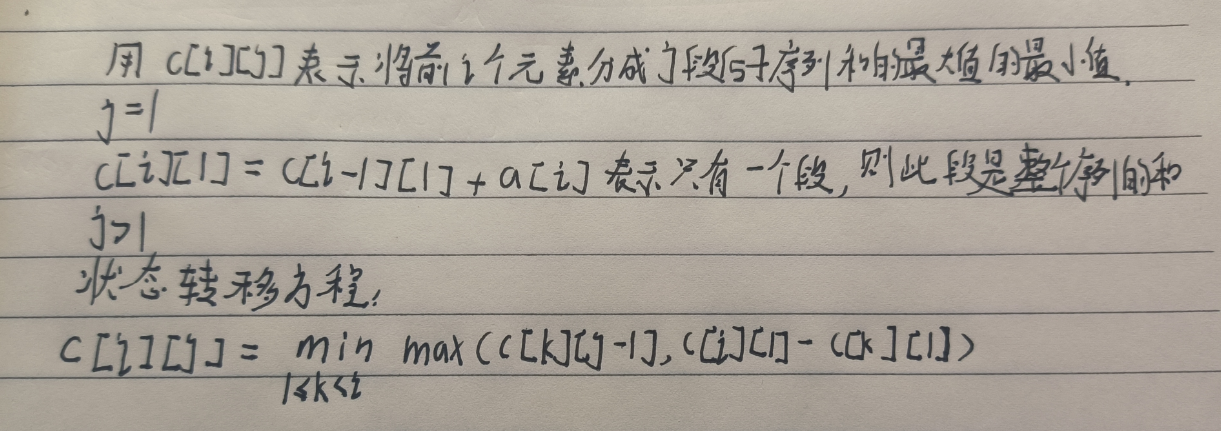 用 C[i][j] 表示将前 i 个元素分成 j 段后子序列和的最大值的最小值.
j=1
C[i][1] = C[i-1][1] + a[i] 表示只有一个段, 则此段是整个序列的和
j>1
状态转移方程:
C[i][j] = min max(C[k][j-1], C[i][1] - C[k][1])
1≤k<i